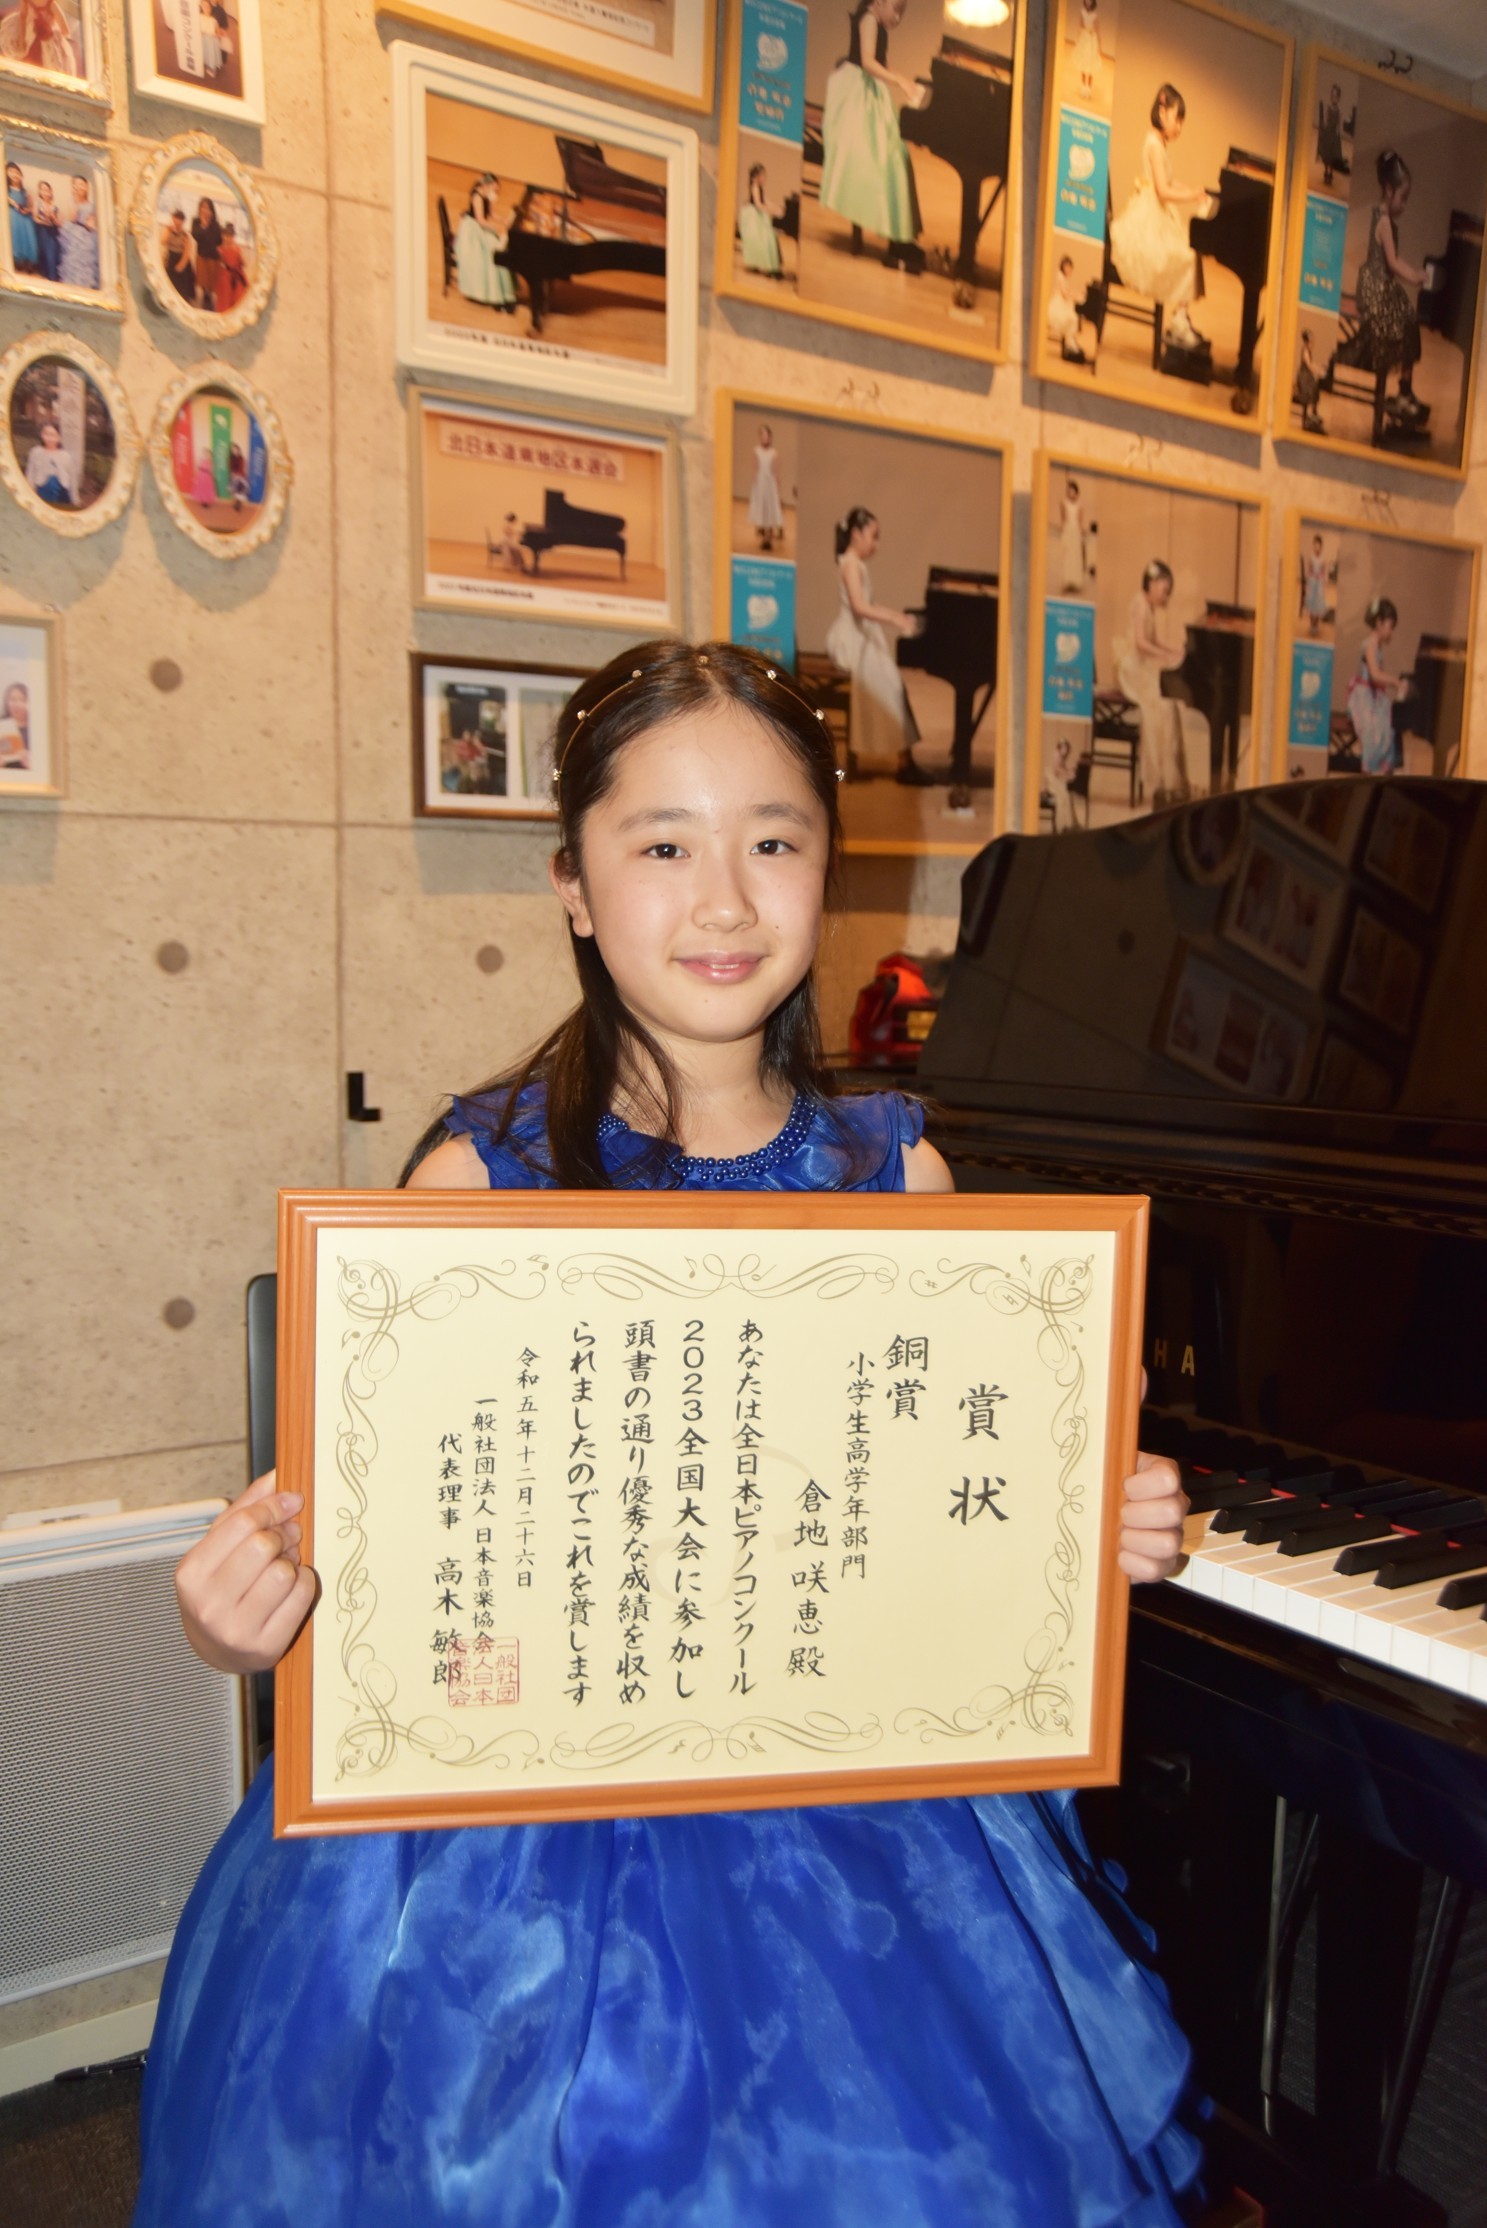 賞状
銅賞
小学生高学年部門
倉地咲恵殿
あなたは全日本ピアノコンクール
2023全国大会に参加し
頭書の通り優秀な成績を収め
られましたのでこれを賞します
令和五年十二月二十六日
一般社団法人日本音楽協会
代表理事 高木敏郎
一般社団
法人日本
音楽協会
北日本道東地区本選会
HA